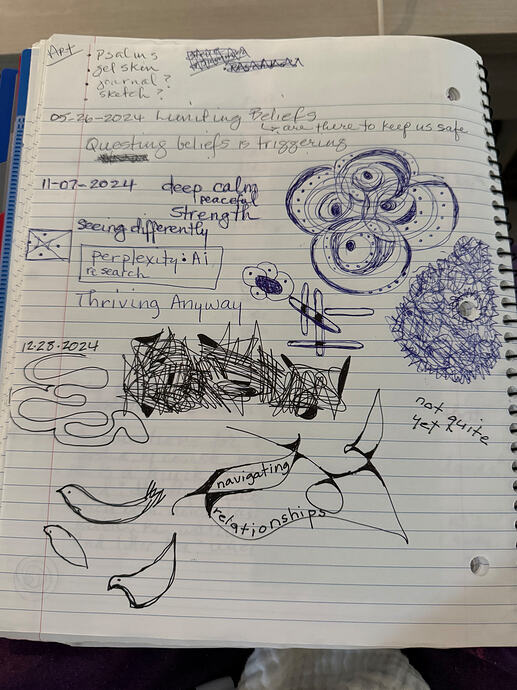 Art
• Psalms
gel sken
journal?
sketch?
05-26-2024 Limiting Beliefs
↳ are there to keep us safe
Questing beliefs is triggering
11-07-2024 deep calm
peaceful
Strength
seeing differently
perplexity.Ai
research
Thriving Anyway
12-28-2024
not quite
yet
navigating
relationships